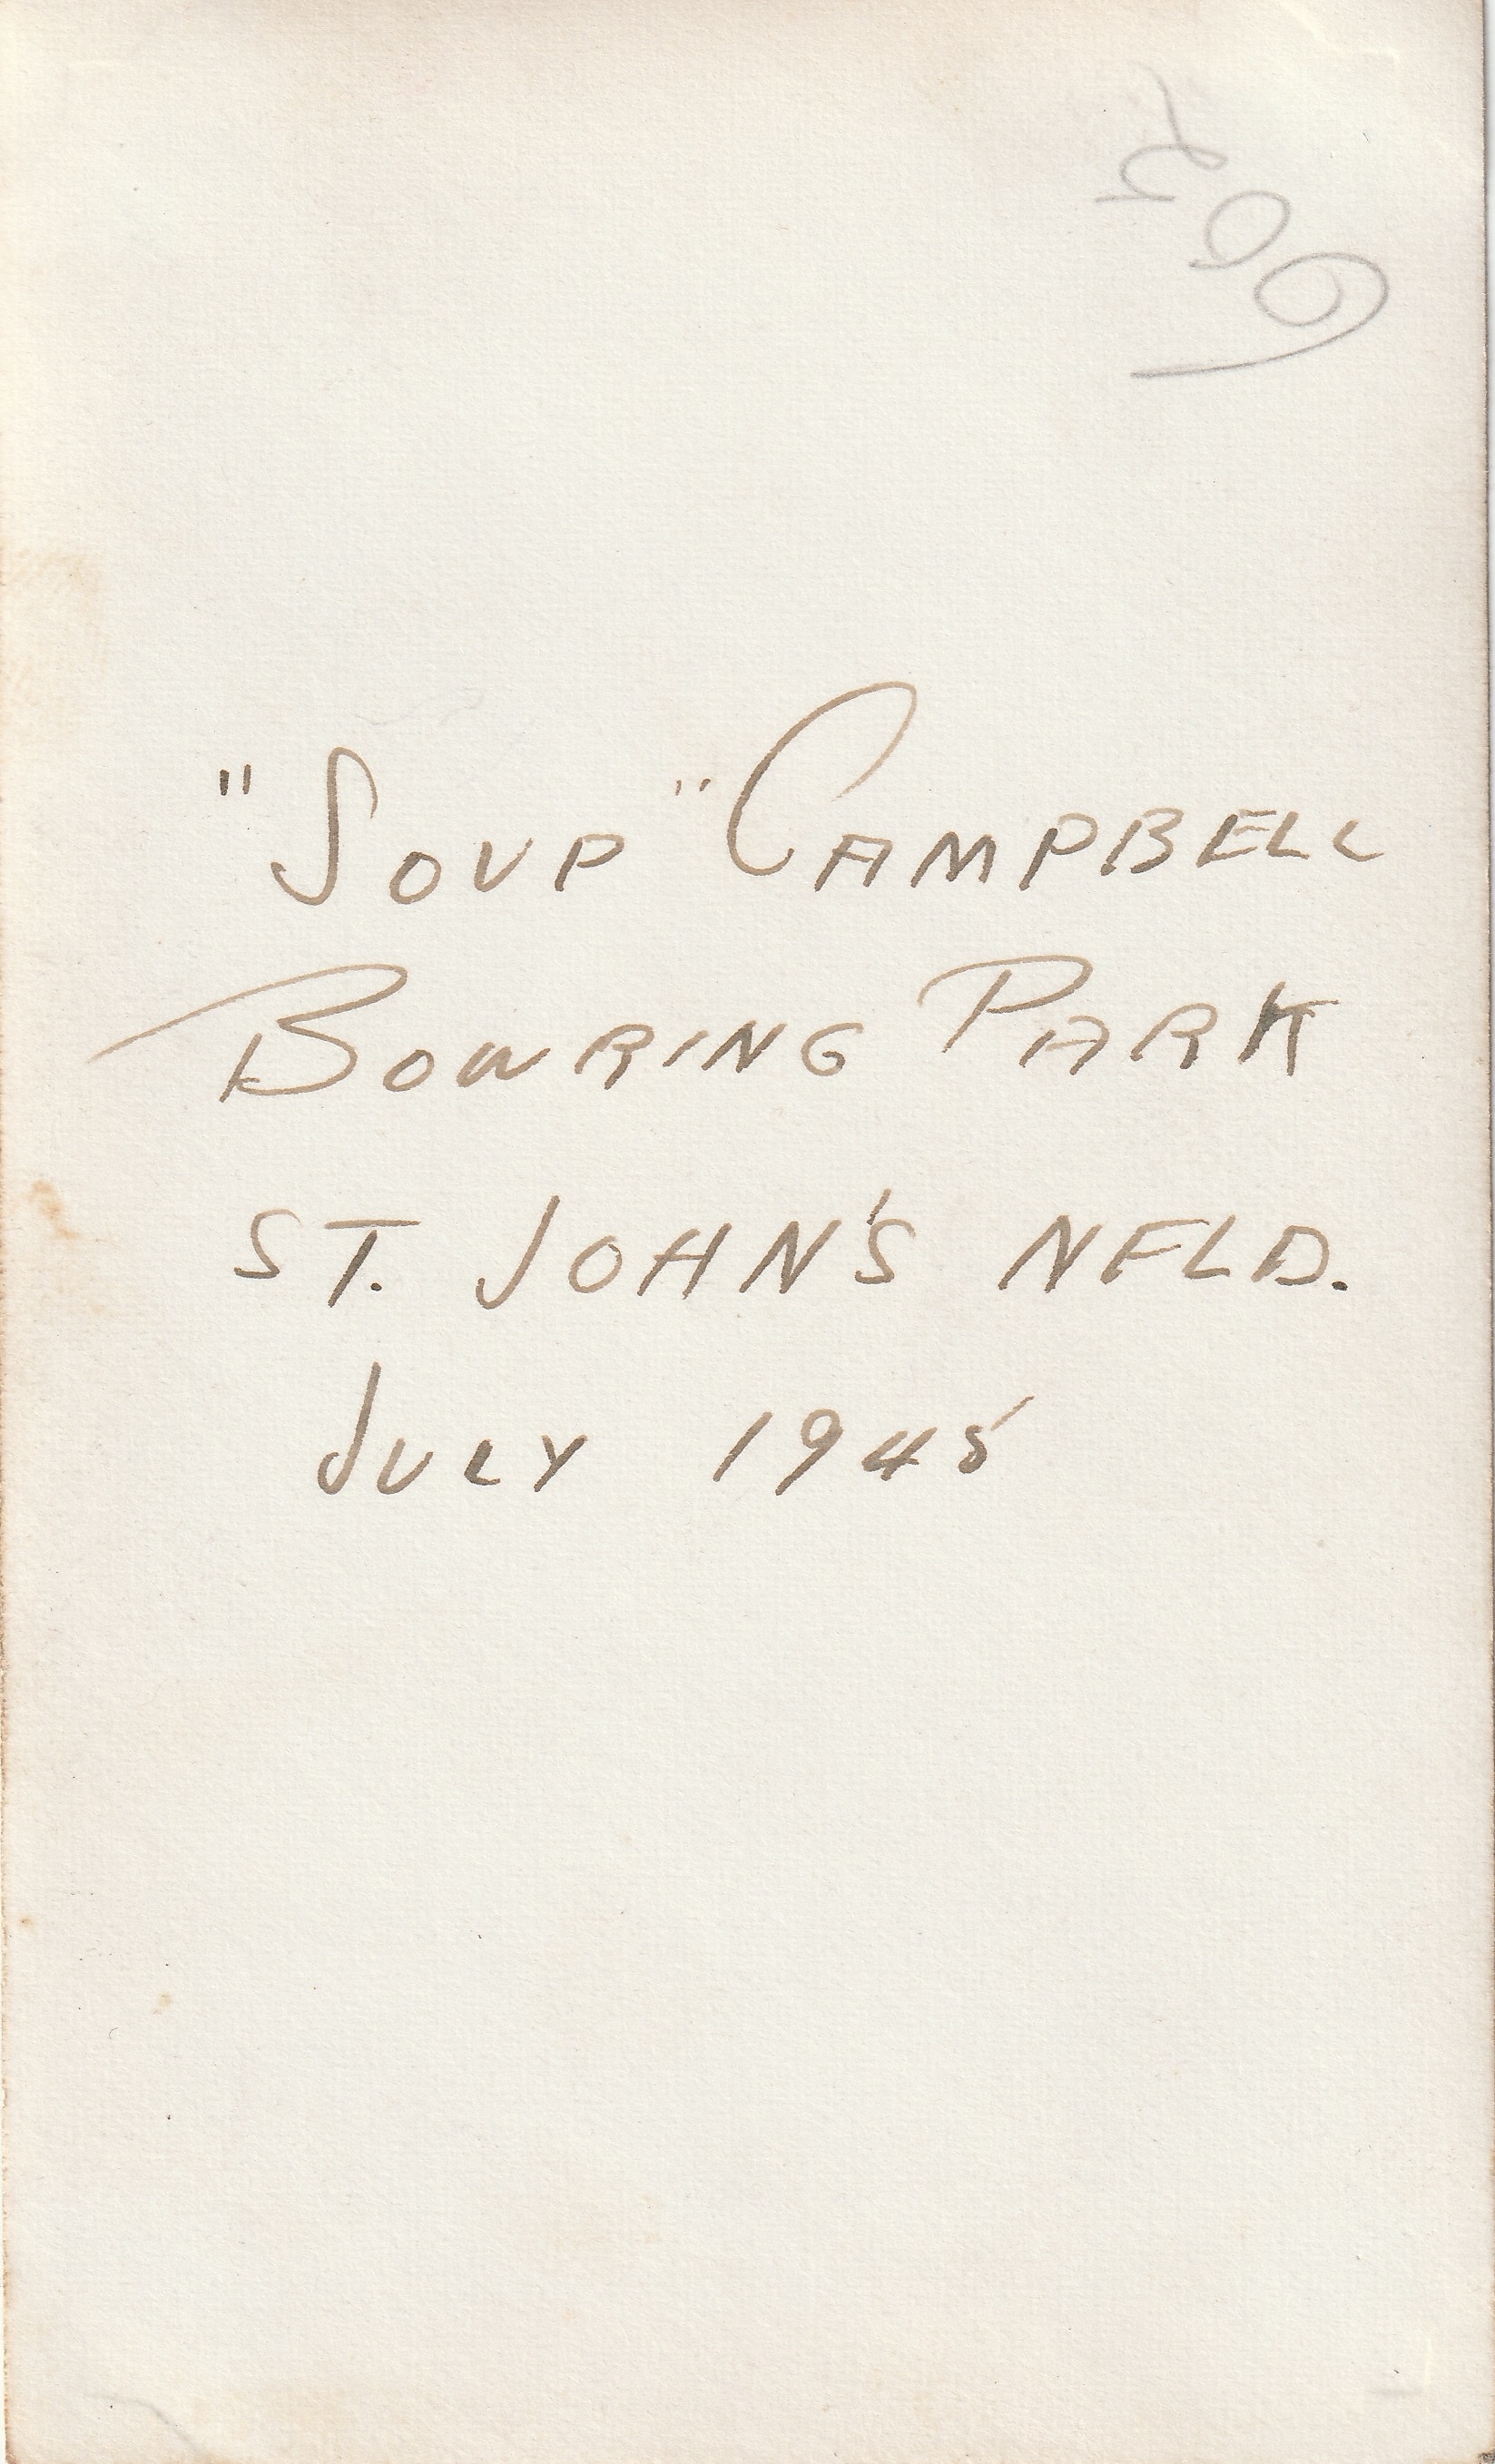 "SOUP" CAMPBELL
BOWRING PARK
ST. JOHN'S NFLD.
JULY 1945